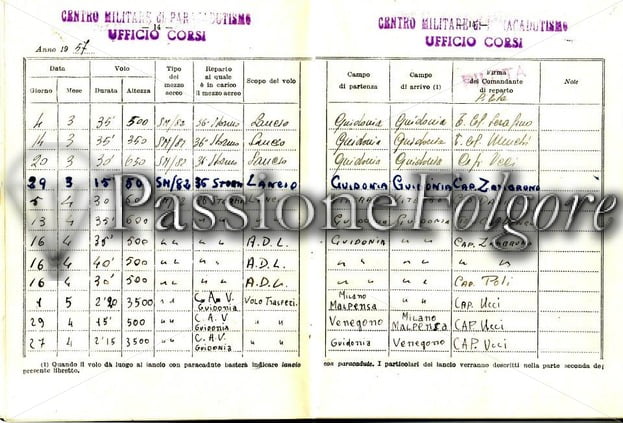 CENTRO MILITARE di PARACADUTISMO
— 14 —
UFFICIO CORSI
Anno 1957
Data Volo Tipo del mezzo aereo Reparto al quale è in carico il mezzo aereo Scopo del volo
Giorno Mese Durata Altezza
4 3 35' 500 SM/82 36° Stormo Lancio
14 3 35' 350 SM/82 36° Stormo Lancio
20 3 30' 650 SM/82 36° Stormo Lancio
29 3 15' 50 SM/82 36 Storm Lancio
5 4 30
13 4 35' 500
16 4 35' 500 " " " " A.D.L.
16 4 40' 500 " " " " A.D.L.
16 4 30' 500 " " " " A.D.L.
1 5 2'20 3500 " " C.A.V. Guidonia Volo Trasfeci.
29 4 15' 500 " " C.A.V Guidonia " "
27 4 2'15 3500 " " C.A.V. Guidonia " "
(1) Quando il volo dà luogo al lancio con paracadute basterà indicare lancio
presente libretto.
CENTRO MILITARE di PARACADUTISMO
UFFICIO CORSI
Campo di partenza Campo di arrivo (1) Firma del Comandante di reparto Note
Guidonia Guidonia
Guidonia Guidonia
Guidonia Guidonia Cap. Ucci
Guidonia Guidonia Cap.
Guidonia " " Cap.
" " " "
" " " " Cap. Poli
Milano Malpensa " " CAP. Ucci
Venegono Milano Malpensa CAP. Ucci
Guidonia Venegono CAP. Ucci
con paracadute. I particolari del lancio verranno descritti nella parte seconda de;
PassioneFolgore